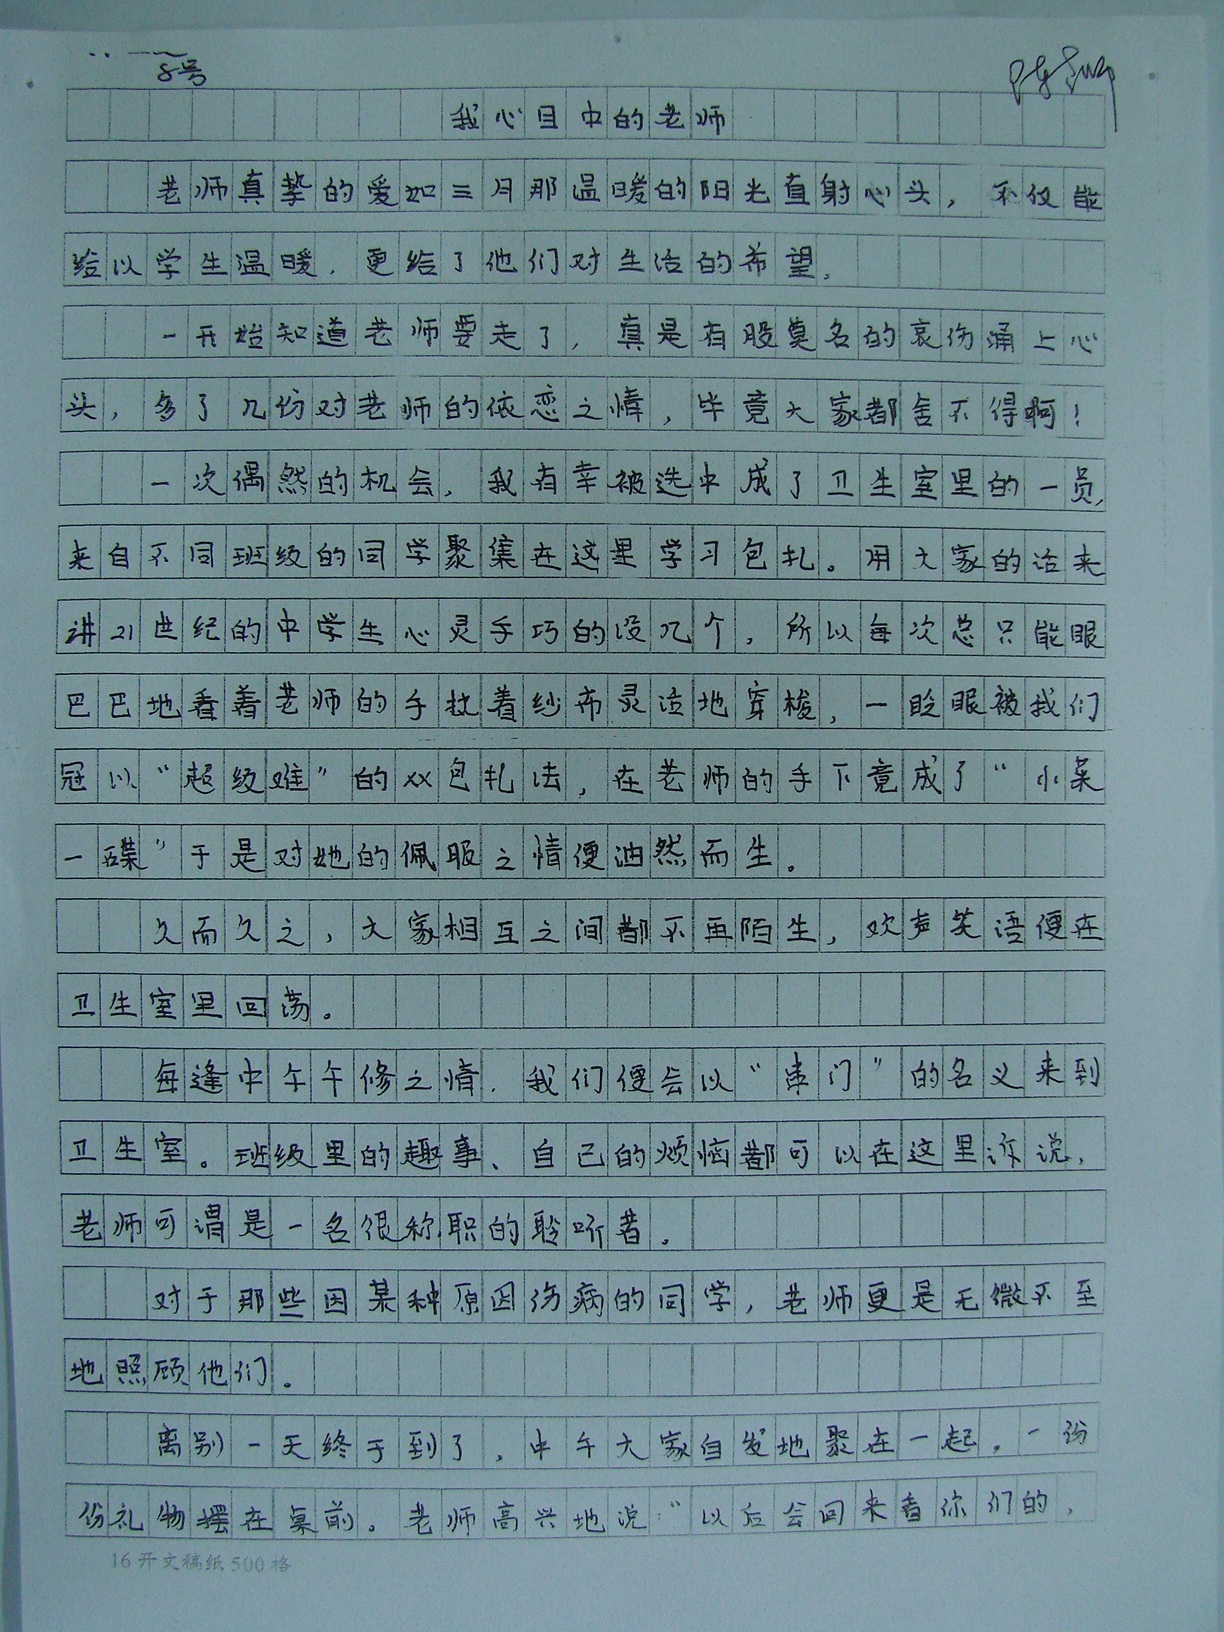 8号
我心目中的老师
老师真挚的爱如三月那温暖的阳光直射心头，不仅能
给以学生温暖，更给了他们对生活的希望。
一开始知道老师要走了，真是有股莫名的哀伤涌上心
头，多了几份对老师的依恋之情，毕竟大家都舍不得啊！
一次偶然的机会，我有幸被选中成了卫生室里的一员，
来自不同班级的同学聚集在这里学习包扎。用大家的话来
讲21世纪的中学生心灵手巧的没几个，所以每次总只能眼
巴巴地看着老师的手拉着纱布灵活地穿梭，一眨眼被我们
冠以“超级难”的XX包扎法，在老师的手下竟成了“小菜
一碟”于是对她的佩服之情便油然而生。
久而久之，大家相互之间都不再陌生，欢声笑语便在
卫生室里回荡。
每逢中午午修之情，我们便会以“串门”的名义来到
卫生室。班级里的趣事、自己的烦恼都可以在这里诉说，
老师可谓是一名很称职的聆听者。
对于那些因某种原因伤病的同学，老师更是无微不至
地照顾他们。
离别一天终于到了，中午大家自发地聚在一起，一份
份礼物摆在桌前。老师高兴地说：“以后会回来看你们的，
16开文稿纸500格